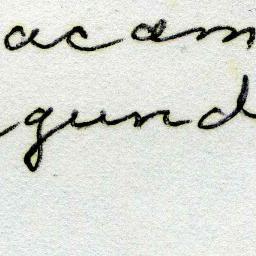 acam
gund